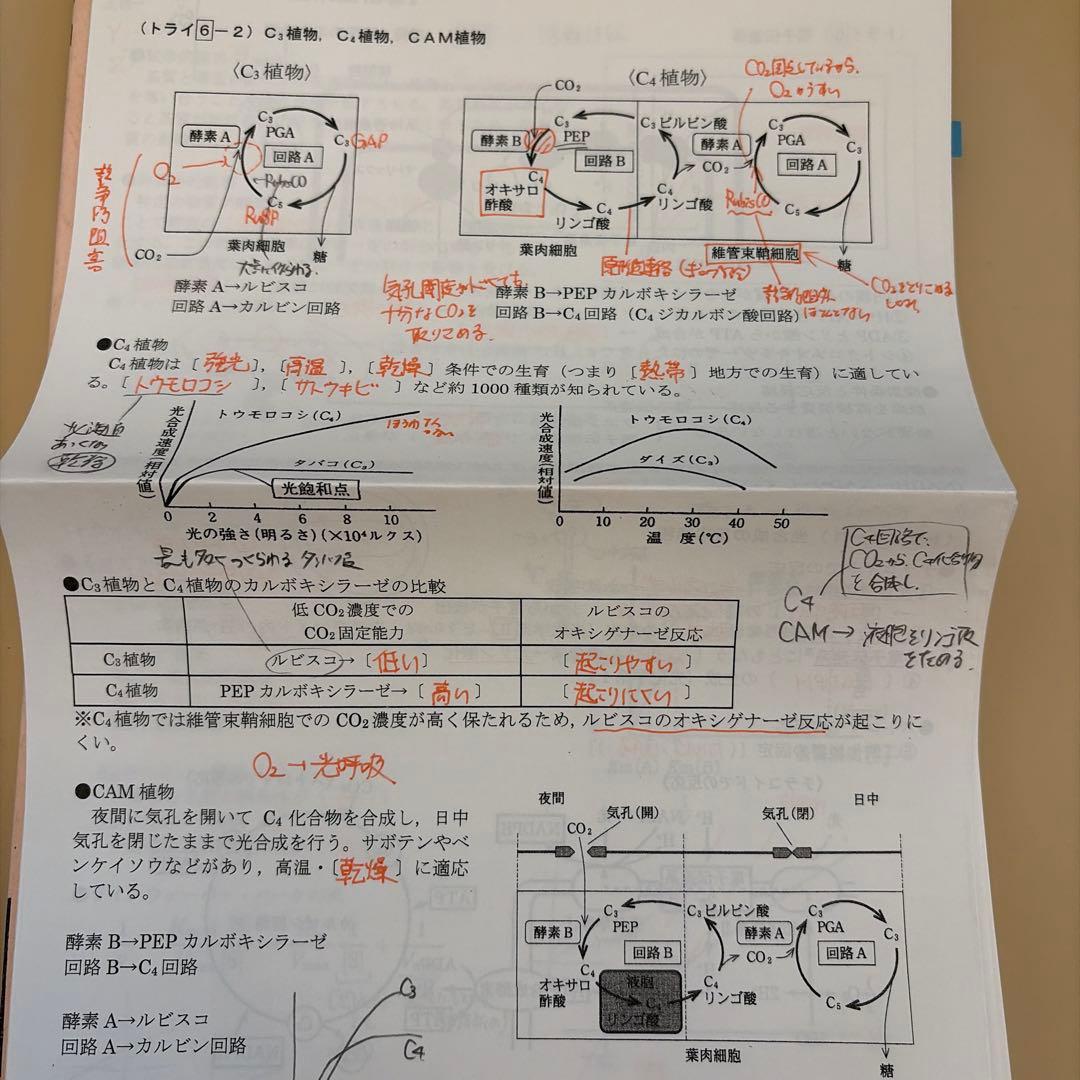 (トライ6-2) C₃植物, C₄植物, CAM植物
〈C₃植物〉
酵素A
C₃
PGA
C₃
GAP
回路A
O₂
RubisCO
C₅
RuBP
CO₂
葉肉細胞
糖
競争的阻害
酵素A→ルビスコ
回路A→カルビン回路
〈C₄植物〉
CO₂
酵素B
C₃
PEP
回路B
C₄
オキサロ
酢酸
C₄
リンゴ酸
C₃ピルビン酸
C₄
リンゴ酸
葉肉細胞
酵素A
CO₂
C₃
PGA
C₃
回路A
RubisCO
C₅
維管束鞘細胞
糖
O₂がうすい
気孔開度が小さくても
十分なCO₂を
取りこめる.
酵素B→PEPカルボキシラーゼ
回路B→C₄回路(C₄ジカルボン酸回路)
●C₄植物
C₄植物は[強光],[高温],[乾燥]条件での生育(つまり[熱帯]地方での生育)に適してい
る。[トウモロコシ],[サトウキビ]など約1000種類が知られている。
北海道
乾燥
光合成速度(相対値)
トウモロコシ(C₄)
タバコ(C₃)
光飽和点
0 2 4 6 8 10
光の強さ(明るさ)(×10⁴ルクス)
光合成速度(相対値)
トウモロコシ(C₄)
ダイズ(C₃)
0 10 20 30 40 50
温度(℃)
最も多くつくられるタンパク質
C₄回路で,
CO₂から,C₄化合物
を合成し.
C₄
CAM→液胞にリンゴ酸
をためる.
●C₃植物とC₄植物のカルボキシラーゼの比較
低CO₂濃度での
CO₂固定能力
ルビスコの
オキシゲナーゼ反応
C₃植物 ルビスコ→[低い] [起こりやすい]
C₄植物 PEPカルボキシラーゼ→[高い] [起こりにくい]
※C₄植物では維管束鞘細胞でのCO₂濃度が高く保たれるため,ルビスコのオキシゲナーゼ反応が起こりに
くい。
O₂→光呼吸
●CAM植物
夜間に気孔を開いてC₄化合物を合成し,日中
気孔を閉じたままで光合成を行う。サボテンやベ
ンケイソウなどがあり,高温・[乾燥]に適応
している。
酵素B→PEPカルボキシラーゼ
回路B→C₄回路
酵素A→ルビスコ
回路A→カルビン回路
C₃
C₄
夜間 気孔(開) 気孔(閉) 日中
CO₂
酵素B
C₃
PEP
回路B
C₄
オキサロ
酢酸
液胞
C₄
リンゴ酸
C₃ピルビン酸
C₄
リンゴ酸
酵素A
CO₂
C₃
PGA
C₃
回路A
C₅
葉肉細胞
糖